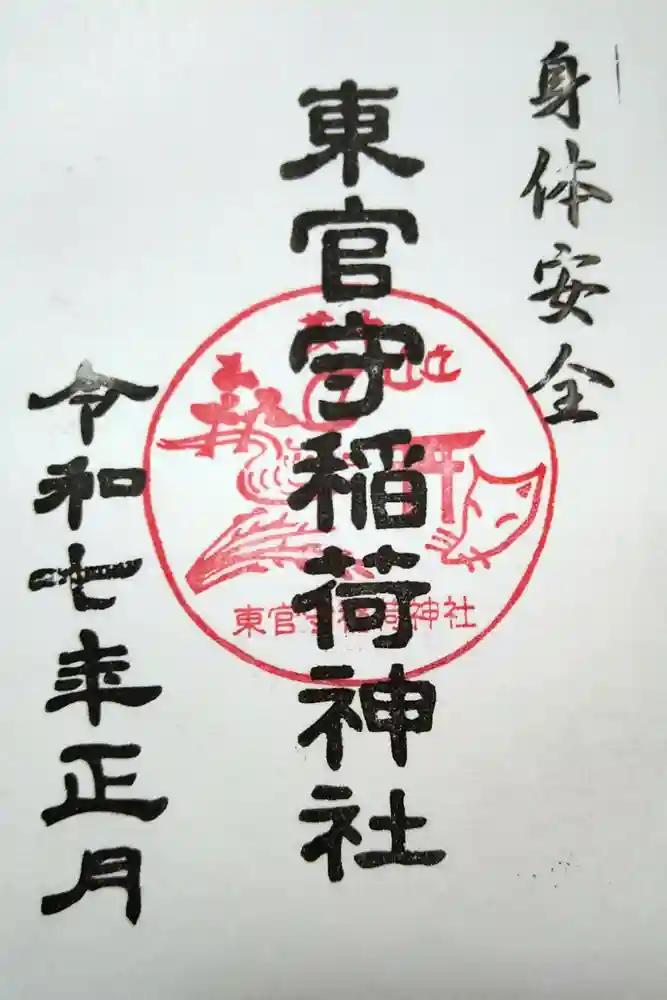 身体安全
東官守稲荷神社
令和七年正月
東官守稲荷神社